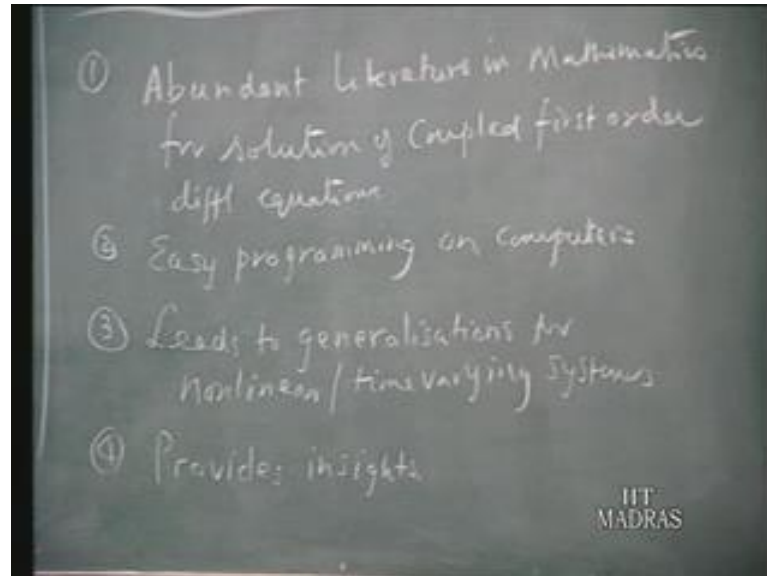 ① Abundant literature in Mathematics
for solution of Coupled first order
diffl equations
② Easy programming on computers
③ Leads to generalisations for
nonlinear / time varying systems
④ Provides insights
IIT
MADRAS